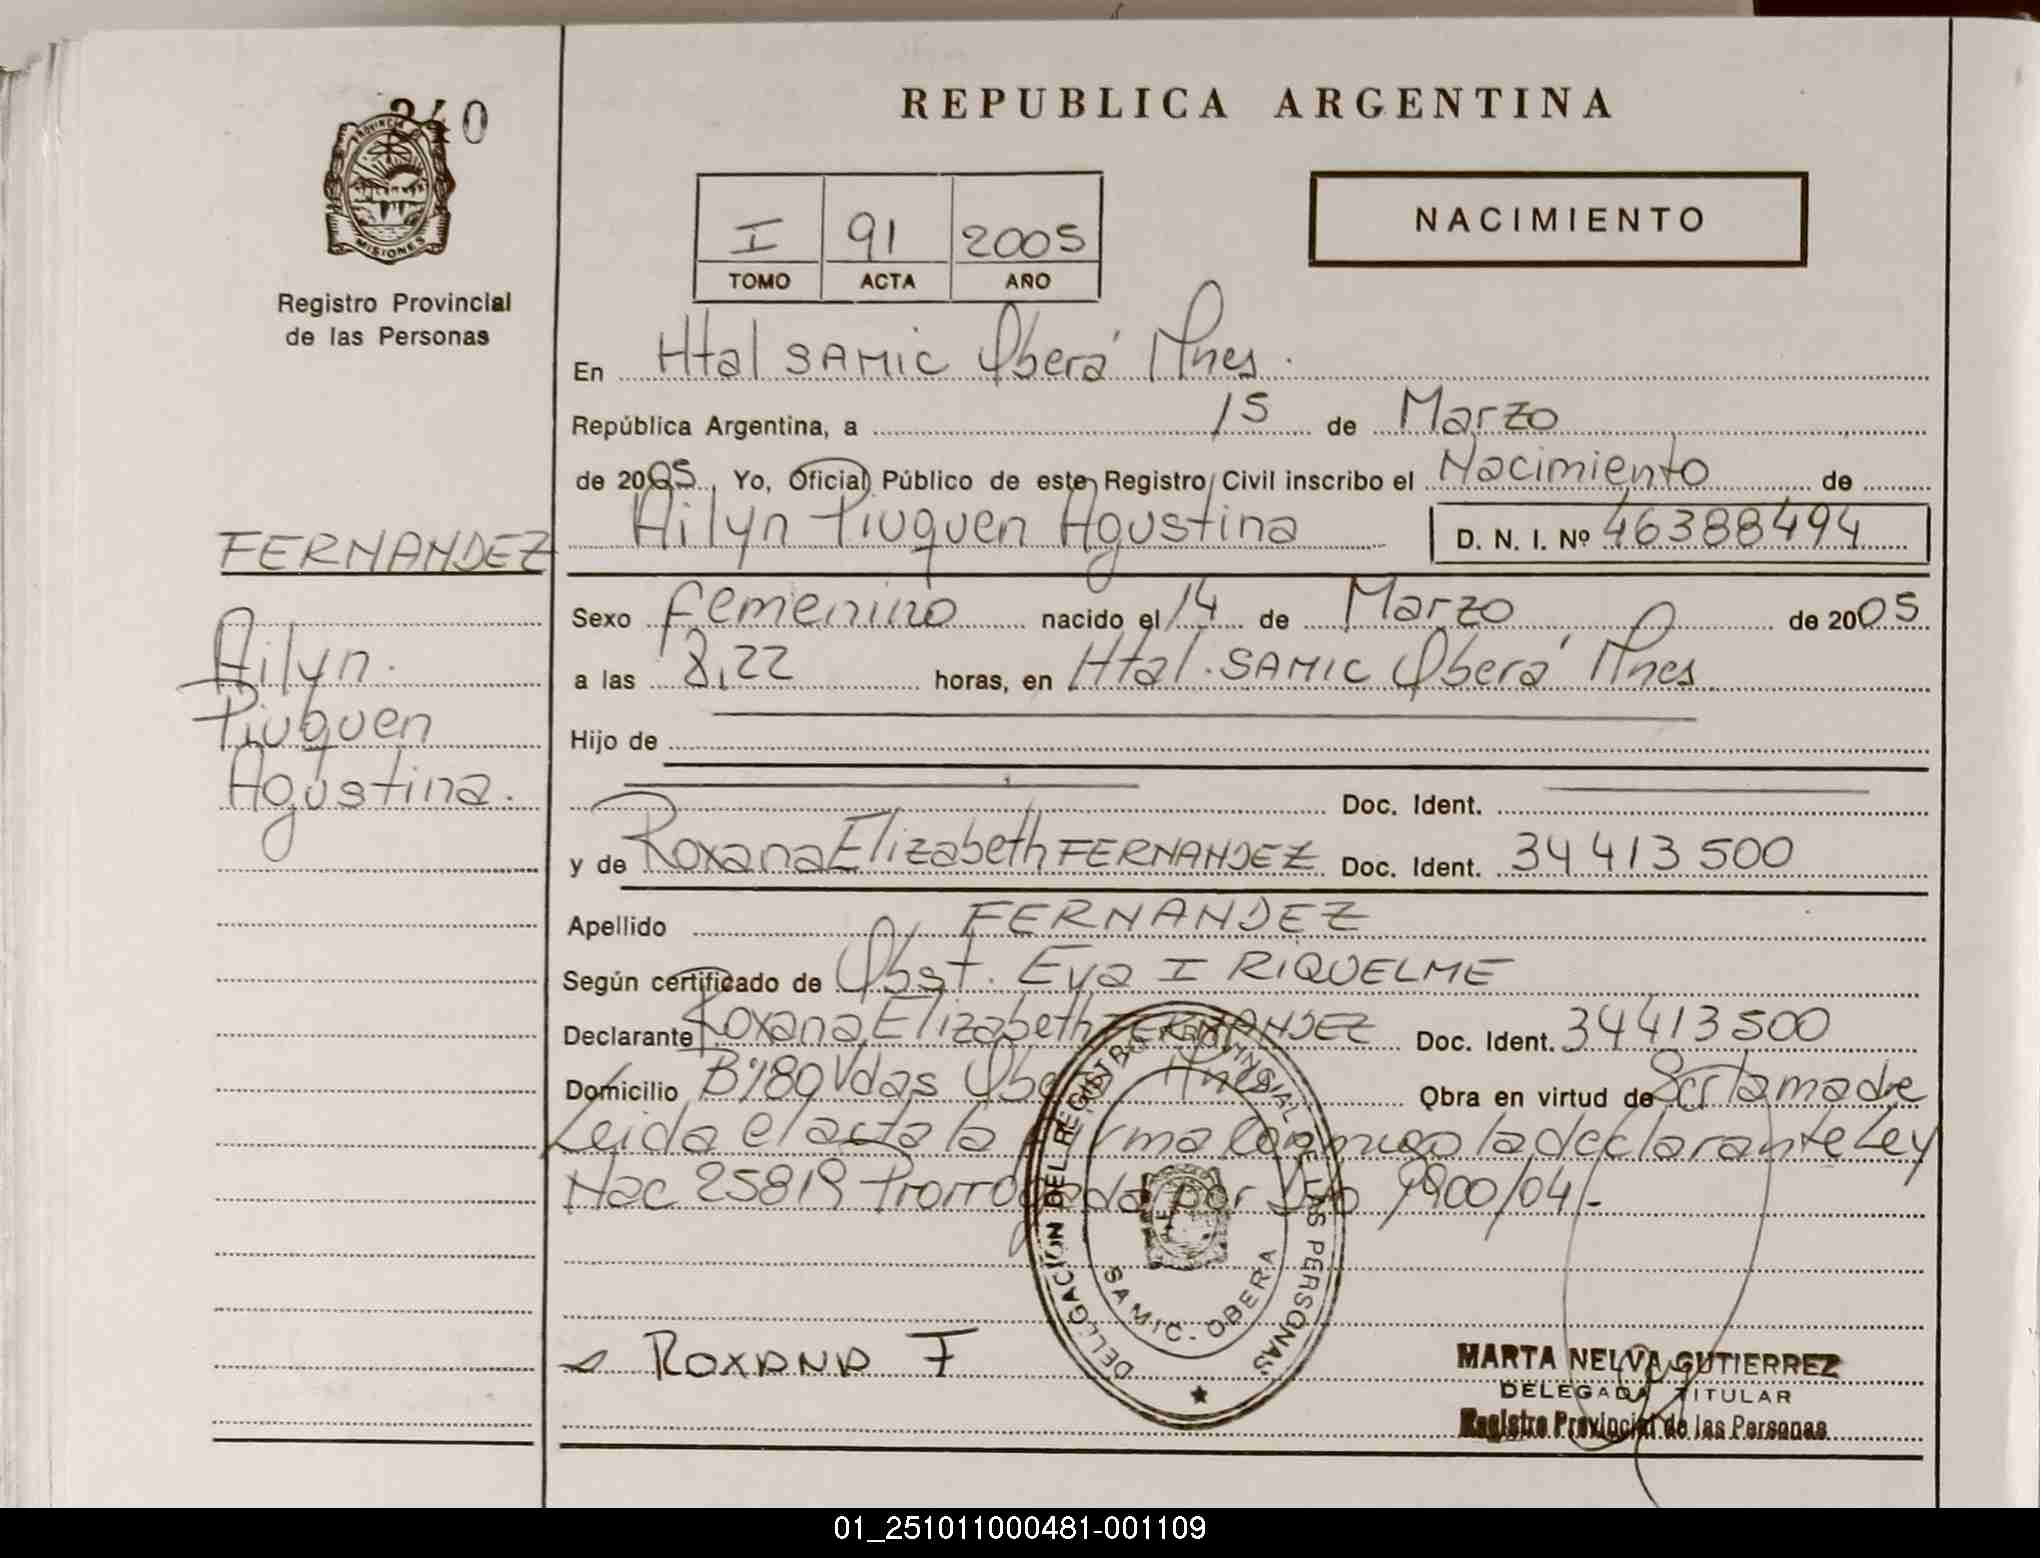 240
PROVINCIA
MISIONES
Registro Provincial
de las Personas
FERNANDEZ
Ailyn.
Piuquen
Agustina.
REPUBLICA ARGENTINA
I 91 2005
TOMO ACTA AÑO
NACIMIENTO
En Htal SAMIC Oberá Mnes.
República Argentina, a 15 de Marzo
de 2005, Yo, Oficial Público de este Registro Civil inscribo el Nacimiento de
Ailyn Piuquen Agustina D. N. I. Nº 46388494
Sexo femenino nacido el 14 de Marzo de 2005
a las 8,22 horas, en Htal. SAMIC Oberá Mnes
Hijo de
Doc. Ident.
y de Roxana Elizabeth FERNANDEZ Doc. Ident. 34 413 500
Apellido FERNANDEZ
Según certificado de Obst. Eva I RIQUELME
Declarante Roxana Elizabeth FERNANDEZ Doc. Ident. 34413500
Domicilio Bº 180 Vdas Oberá Mnes Obra en virtud de Ser la madre
Leida el acta la firma conmigo la declarante Ley
Nac 25819 Prorrogada por Dto 1900/04/-
DELEGACION DEL REGISTRO PROVINCIAL DE LAS PERSONAS
SAMIC - OBERA
ROXANA F
MARTA NELVA GUTIERREZ
DELEGADA TITULAR
Registro Provincial de las Personas
01_251011000481-001109